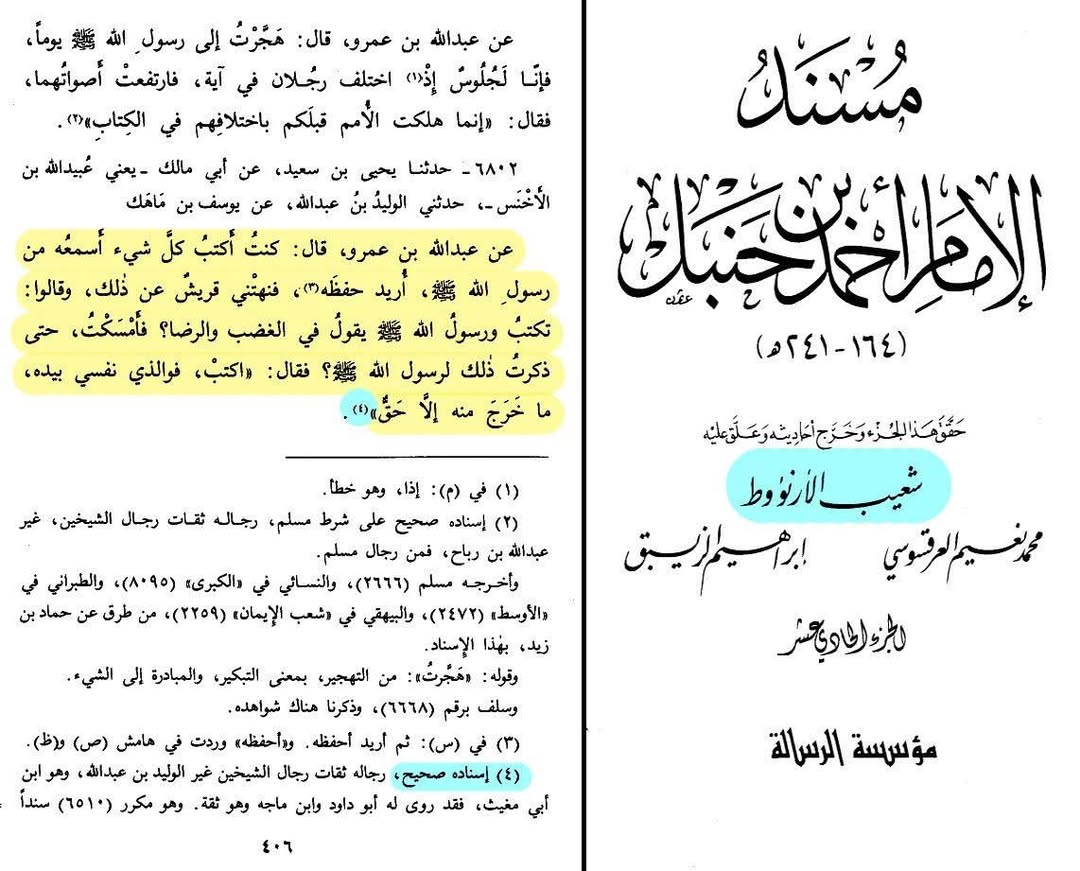 مُسْنَدُ
الإمَامِ أحْمَد بن حَنبَل
(١٦٤ - ٢٤١ه)
حَقَّقَ هَذَا الجُزْء وَخَرَّجَ أحَاديثه وَعَلَّق عَليْه
شعيب الأرنؤوط
محمد نعيم العرقسوسي إبراهيم الزيبق
الجزء الحادي عشر
مؤسسة الرسالة
عن عبدالله بن عمرو، قال: هَجَّرْتُ إلى رسولِ الله ﷺ يوماً،
فإنّا لَجُلُوسٌ إِذْ(١) اختلف رجُلان في آية، فارتفعتْ أصواتُهما،
فقال: «إنما هلكت الأُمم قبلَكم باختلافِهم في الكِتابِ»(٢).
٦٨٠٢ـ حدثنا يحيى بن سعيد، عن أبي مالك ـ يعني عُبيدالله بن
الأَخْنَس ـ، حدثني الوليدُ بنُ عبدالله، عن يوسف بن مَاهَك
عن عبدالله بن عمرو، قال: كنتُ أَكتبُ كلَّ شيء أَسمعُه من
رسولِ الله ﷺ، أُريد حفظَه(٣)، فنهتْني قريشٌ عن ذٰلك، وقالوا:
تكتبُ ورسولُ الله ﷺ يقولُ في الغضب والرضا؟ فأَمْسَكْتُ، حتى
ذكرتُ ذٰلك لرسول الله ﷺ؟ فقال: «اكتبْ، فوالذي نفسي بيده،
ما خَرَجَ منه إلَّا حَقٌّ»(٤).
(١) في (م): إذا، وهو خطأ.
(٢) إسناده صحيح على شرط مسلم، رجاله ثقات رجال الشيخين، غير
عبدالله بن رباح، فمن رجال مسلم.
وأخرجه مسلم (٢٦٦٦)، والنسائي في «الكبرى» (٨٠٩٥)، والطبراني في
«الأوسط» (٢٤٧٢)، والبيهقي في «شعب الإيمان» (٢٢٥٩)، من طرق عن حماد بن
زيد، بهٰذا الإسناد.
وقوله: «هَجَّرتُ»: من التهجير، بمعنى التبكير، والمبادرة إلى الشيء.
وسلف برقم (٦٦٦٨)، وذكرنا هناك شواهده.
(٣) في (س): ثم أريد أحفظه. و«أحفظه» وردت في هامش (ص) و(ظ).
(٤) إسناده صحيح، رجاله ثقات رجال الشيخين غير الوليد بن عبدالله، وهو ابن
أبي مغيث، فقد روى له أبو داود وابن ماجه وهو ثقة. وهو مكرر (٦٥١٠) سنداً
٤٠٦